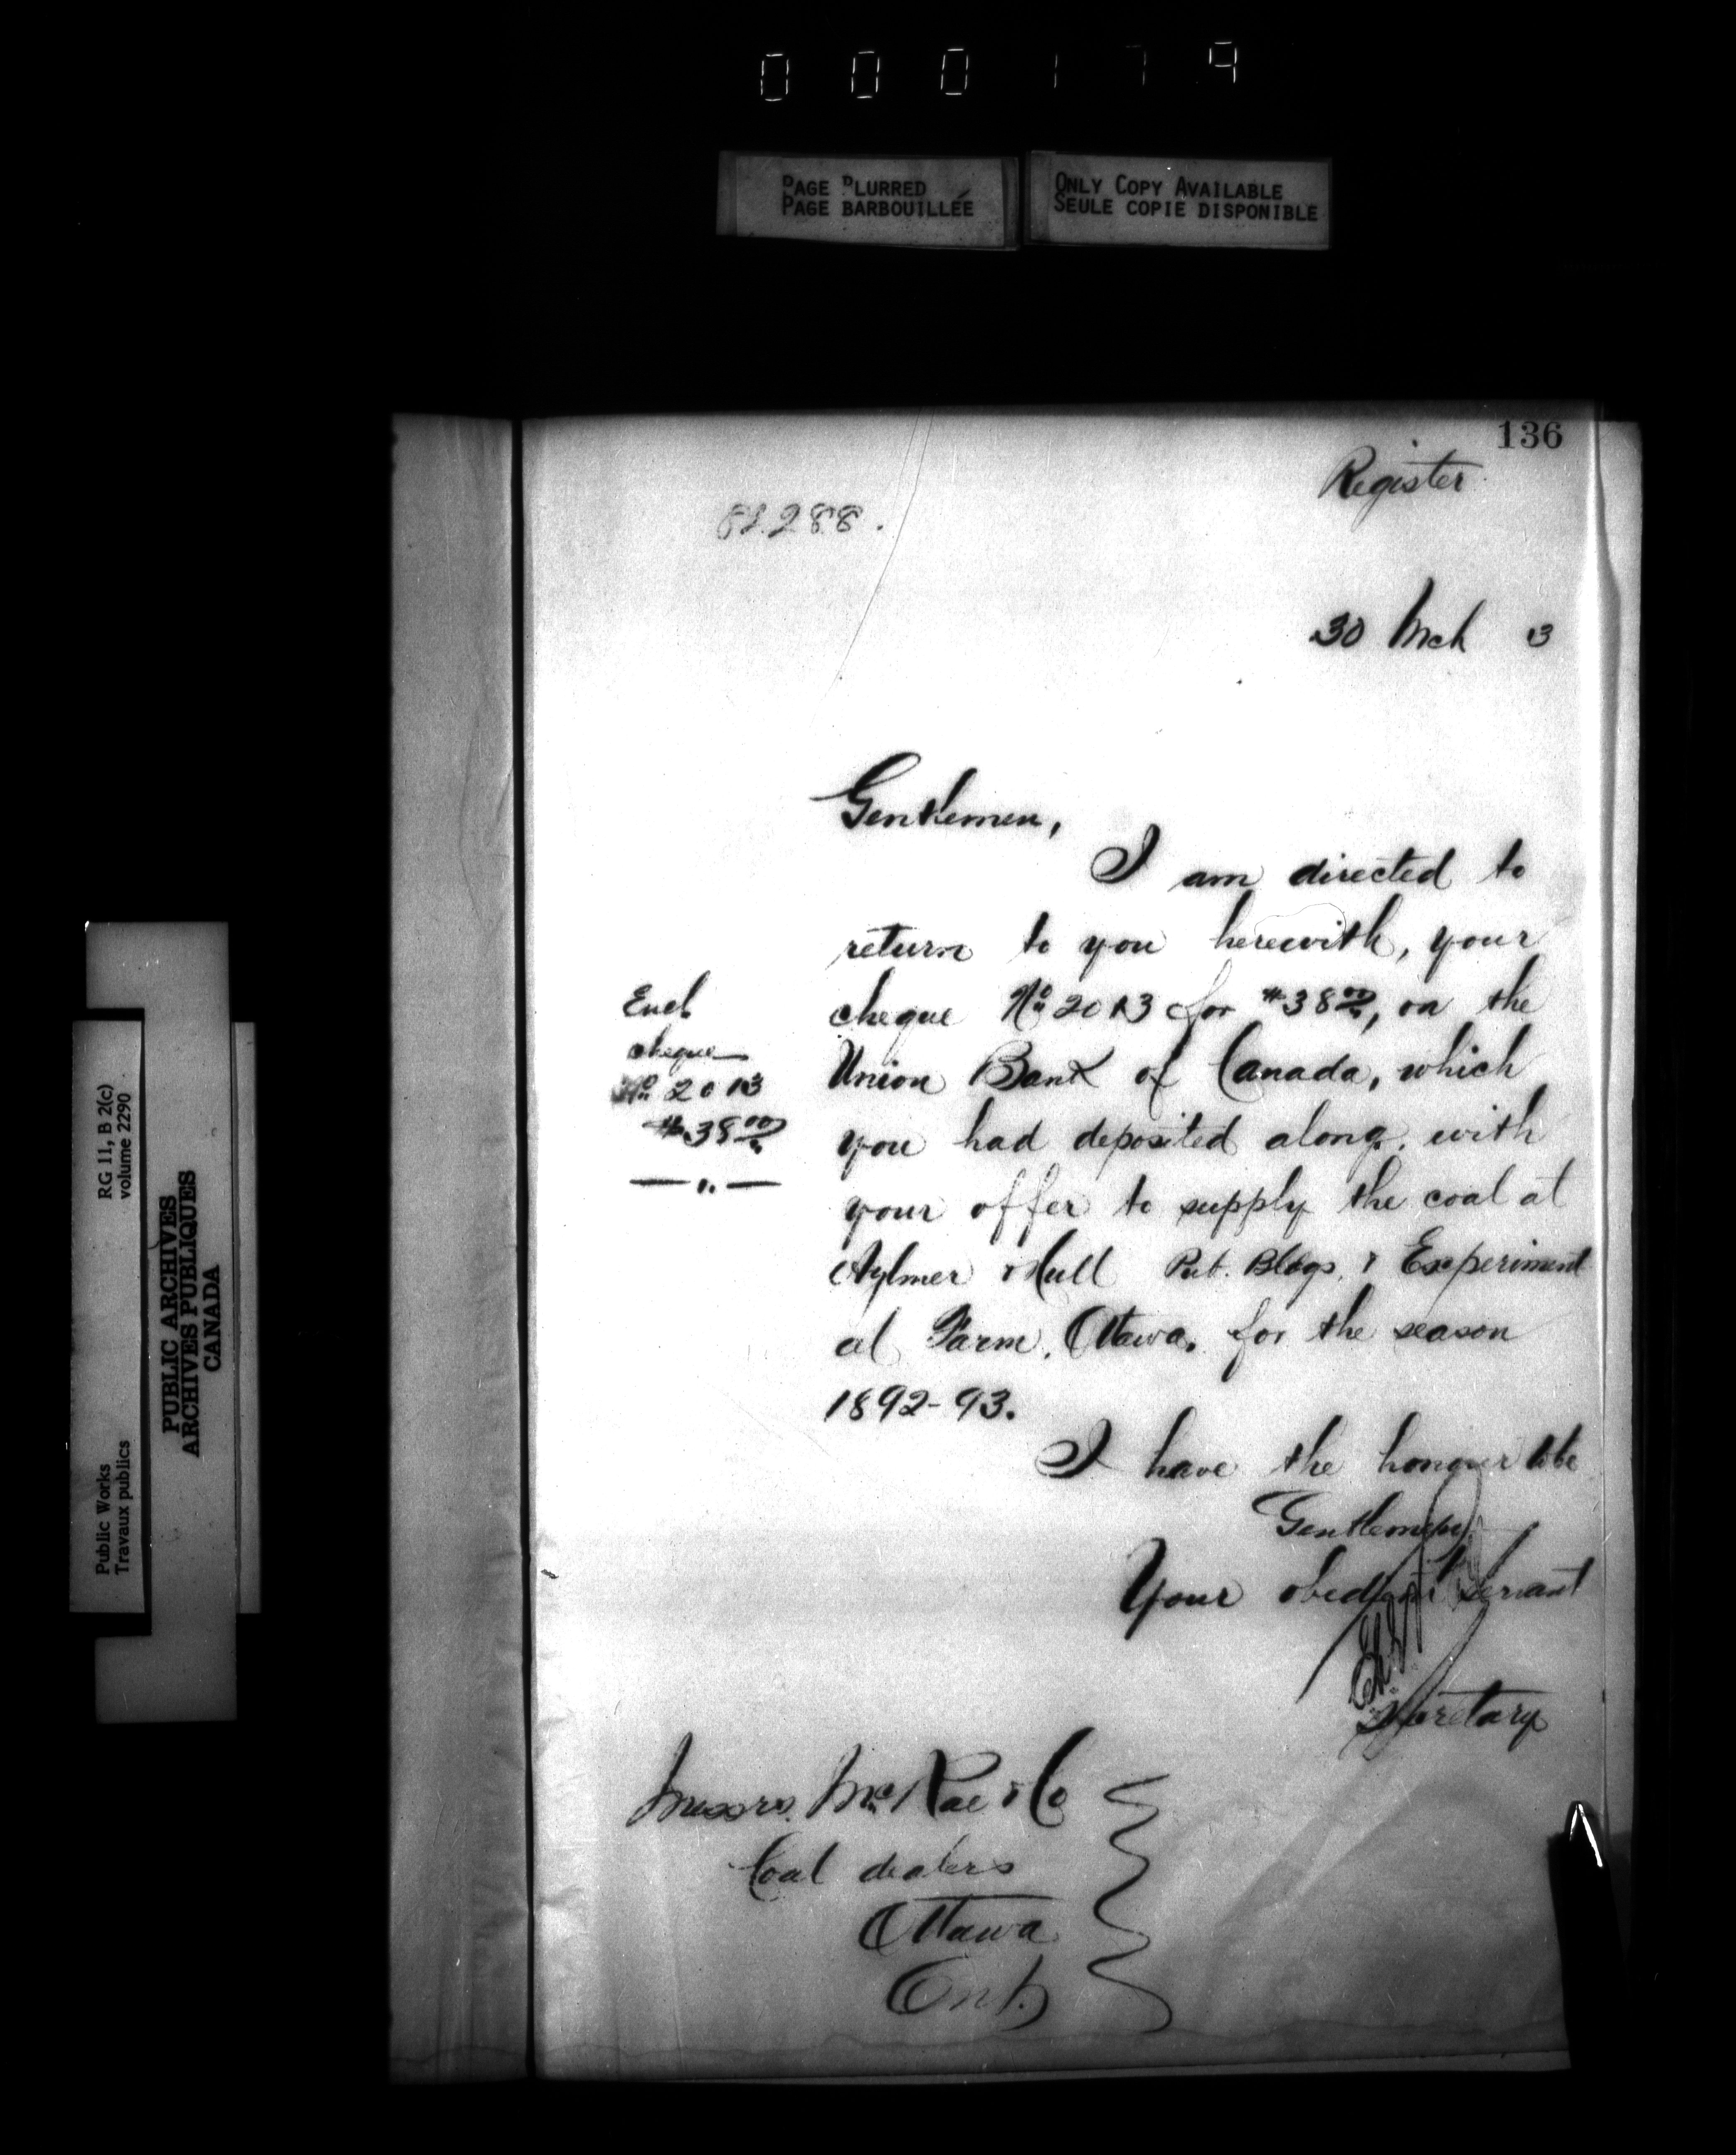 000179
PAGE BLURRED
PAGE BARBOUILLÉE
ONLY COPY AVAILABLE
SEULE COPIE DISPONIBLE
136
Register
30 Mch 3
Gentlemen,
I am directed to
return to you herewith, your
cheque No 2013 for $38 00, on the
Union Bank of Canada, which
you had deposited along with
your offer to supply the coal at
Aylmer & Hull Pub. Bldgs, & Experiment
al Farm, Ottawa, for the season
1892-93.
I have the honour to be
Gentlemen
Your obedient servant
Secretary
Encl.
cheque
No 2013
$38 00
Messrs. McRae & Co
Coal dealers
Ottawa
Ont.
RG 11, B 2(c)
volume 2290
Public Works
Travaux publics
PUBLIC ARCHIVES
ARCHIVES PUBLIQUES
CANADA